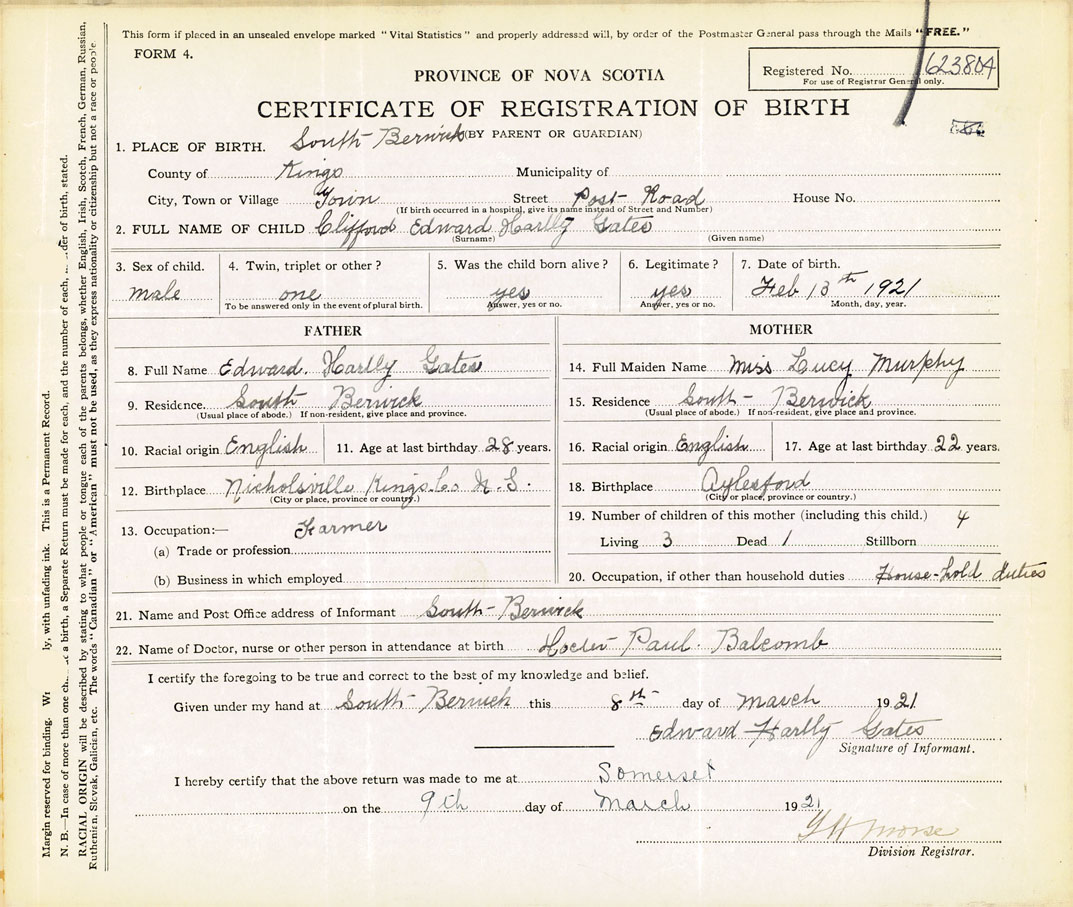 This form if placed in an unsealed envelope marked "Vital Statistics" and properly addressed will, by order of the Postmaster General pass through the Mails "FREE."
FORM 4.
Registered No. 623804
For use of Registrar General only.
PROVINCE OF NOVA SCOTIA
CERTIFICATE OF REGISTRATION OF BIRTH
(BY PARENT OR GUARDIAN)
1. PLACE OF BIRTH. South Berwick
County of Kings Municipality of
City, Town or Village Town Street Post Road House No.
(If birth occurred in a hospital, give its name instead of Street and Number)
2. FULL NAME OF CHILD Clifford Edward Hartly Gates
(Surname) (Given name)
3. Sex of child. 4. Twin, triplet or other? 5. Was the child born alive? 6. Legitimate? 7. Date of birth.
male one yes yes Feb 13th 1921
To be answered only in the event of plural birth. Answer, yes or no. Answer, yes or no. Month, day, year.
FATHER MOTHER
8. Full Name Edward. Hartly Gates 14. Full Maiden Name Miss Lucy Murphy
9. Residence. South Berwick 15. Residence South - Berwick
(Usual place of abode.) If non-resident, give place and province. (Usual place of abode.) If non-resident, give place and province.
10. Racial origin English 11. Age at last birthday 28 years. 16. Racial origin English 17. Age at last birthday 22 years.
12. Birthplace Nicholsville Kings. Co N. S. 18. Birthplace Aylesford
(City or place, province or country.) (City or place, province or country.)
13. Occupation:— Farmer 19. Number of children of this mother (including this child.) 4
(a) Trade or profession Living 3 Dead 1 Stillborn
(b) Business in which employed 20. Occupation, if other than household duties House-hold duties
21. Name and Post Office address of Informant South - Berwick
22. Name of Doctor, nurse or other person in attendance at birth Paul. Balcomb
I certify the foregoing to be true and correct to the best of my knowledge and belief.
Given under my hand at South - Berwick this 8th day of March 1921
Edward Hartly Gates
Signature of Informant.
I hereby certify that the above return was made to me at Somerset
on the 9th day of March 1921
Morse
Division Registrar.
Margin reserved for binding. ly, with unfading ink. This is a Permanent Record.
N. B.—In case of more than one a birth, a Separate Return must be made for each, and the number of each, of birth, stated.
RACIAL ORIGIN will be described by stating to what people or tongue each of the parents belongs, whether English, Irish, Scotch, French, German, Russian,
Ruthenian, Slovak, Galician, etc. The words "Canadian" or "American" must not be used, as they express nationality or citizenship but not a race or people